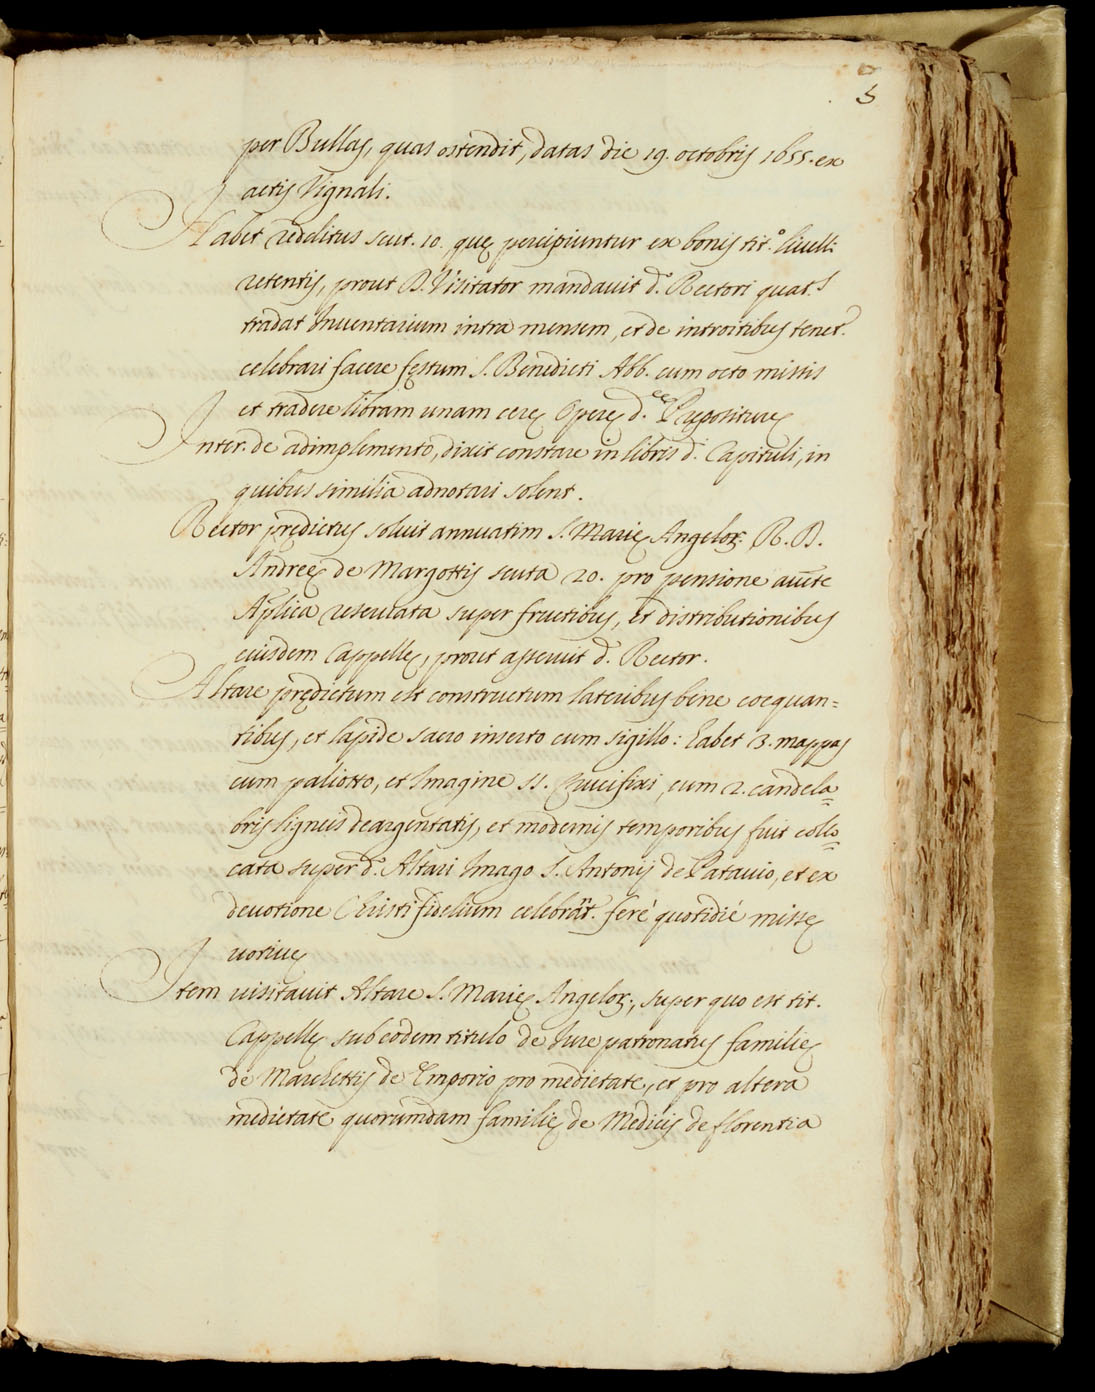 5
per Bullas, quas ostendit, datas die 19. octobris 1655. ex
actis Vignali.
Habet redditus scut. 10. quę percipiuntur ex bonis tit.º livelli
retentis, prout D. Visitator mandavit d. Rectori quat.s
tradat Inventarium intra mensem, et de introitibus tenet.r
celebrari facere festum S. Benedicti Abb. cum octo missis
et tradere libram unam cerę Operę d.ę Prępositurę
Inter. de adimplemento, dixit constare in libris d. Capituli, in
quibus similia adnotari solent.
Rector prędictus solvit annuatim S. Marię Angelor. R. D.
Andreę de Margottis scuta 20. pro pensione auct.e
Aplica reservata super fructibus, et distributionibus
eiusdem Cappellę, prout asseruit d. Rector.
Altare prędictum est constructum lateribus bene coequan=
tibus, et lapide sacro inserto cum sigillo: habet 3. mappas
cum paliotto, et Imagine SS. Crucifixi, cum 2. candela=
bris ligneis deargentatis, et modernis temporibus fuit collo=
cata super d. Altari Imago S. Antonij de Patavio, et ex
devotione Christi fidelium celebrant.r feré quotidié missę
votivę
Item visitavit Altare S. Marię Angelor., super quo est tit.
Cappellę sub eodem titulo de Iure patronatus familię
de Marchettis de Emporio pro medietate, et pro altera
medietate quorumdam familię de Medicis de florentia